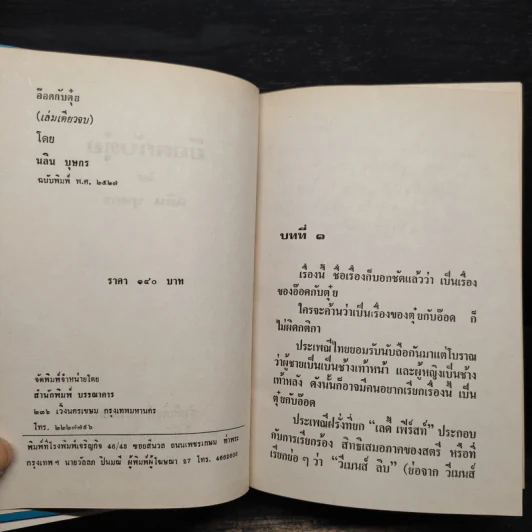 อ๊อดกับตุ๋ย
(เล่มเดียวจบ)
โดย
นลิน บุษกร
ฉบับพิมพ์ พ.ศ. ๒๕๒๗
ราคา ๑๔๐ บาท
จัดพิมพ์จำหน่ายโดย
สำนักพิมพ์ บรรณาคาร
๒๐๖ เวิ้งนครเขษม กรุงเทพมหานคร
โทร. ๒๒๒๗๗๕๖
พิมพ์ที่โรงพิมพ์เจริญกิจ 46/48 ซอยสันวล ถนนเพชรเกษม ท่าพระ
กรุงเทพฯ นายวัลลภ ปิ่นมณี ผู้พิมพ์ผู้โฆษณา 27 โทร.
บทที่ ๑
เรื่องนี้ ชื่อเรื่องก็บอกชัดแล้วว่า เป็นเรื่อง
ของอ๊อดกับตุ๋ย
ใครจะค้านว่าเป็นเรื่องของตุ๋ยกับอ๊อด ก็
ไม่ผิดกติกา
ประเพณีไทยยอมรับนับถือกันมาแต่โบราณ
ว่าผู้ชายเป็นเป็นช้างเท้าหน้า และผู้หญิงเป็นช้าง
เท้าหลัง ดังนั้นก็อาจมีคนอยากเรียกเรื่องนี้ เป็น
ตุ๋ยกับอ๊อด
ประเพณีฝรั่งที่ยก “เลดี้ เฟิร์สท์” ประกอบ
กับการเรียกร้อง สิทธิเสมอภาคของสตรี หรือที่
เรียกย่อ ๆ ว่า “วีเมนส์ ลิบ” (ย่อจาก วีเมนส์